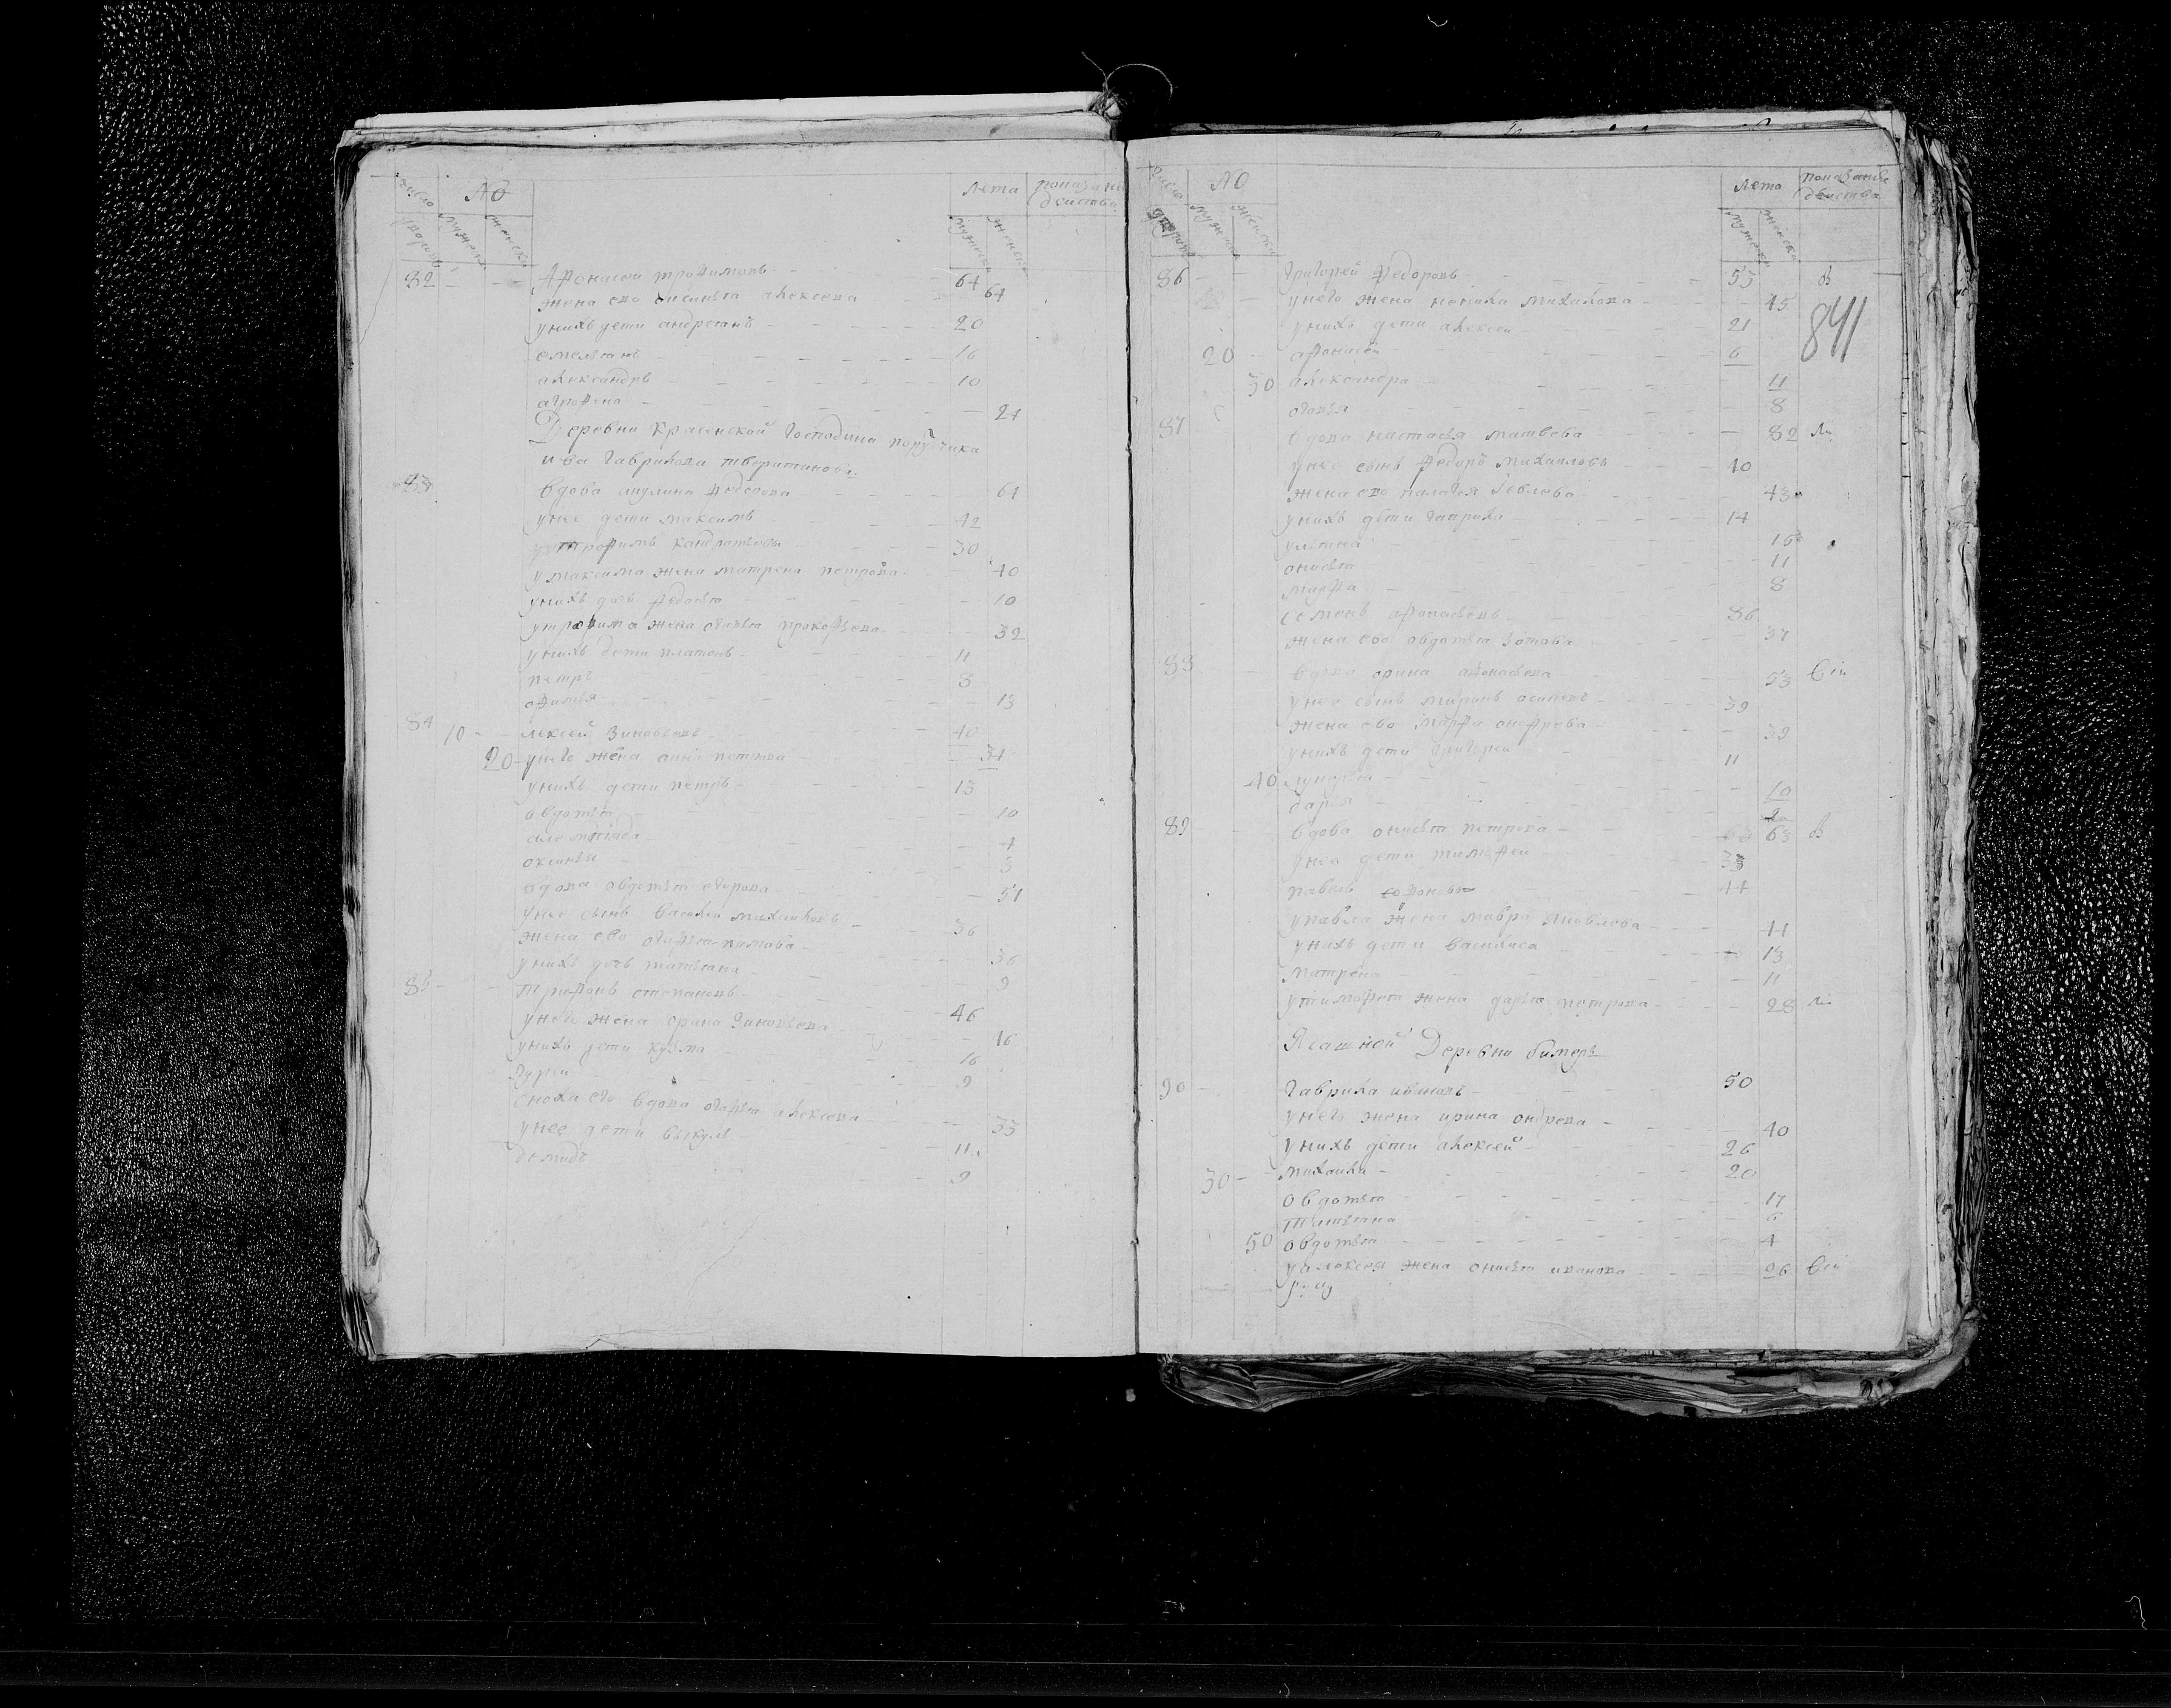 число дворовъ АО мужеска женска лета мужеска женска показание действа
82 Афонасеи трофимовъ 64
жена ево алексеева 64
унихъ дети андреянъ 20
емельянъ 16
александръ 10
агрофена 24
Деревни Красенской Господина порутчика
ива Гаврилова тверитинова
83 вдова акулина федорова 61
унее дети максимъ 42
трофимъ кандратьевы 30
у максима жена матрена петрова 40
унихъ дочь федосья 10
утрофима жена прокофьева 32
унихъ дети платонъ 11
петръ 8
офимья 13
84 10 лексей Зиновьевъ 40
20 унего жена анна петрова 34
унихъ дети петръ 13
овдотья 10
4
оксинья 3
вдова овдотья егорова 51
унее сынъ василеи михаиловъ 36
жена ево 36
унихъ дочь татьяна 9
85 трифонъ степановъ 46
унего жена орина Зиновьева 46
унихъ дети кузма 16
9
сноха его вдова алексеева 33
унее дети викулъ 11
демидъ 9
число дворовъ АО мужеска женска лета мужеска женска показание действа
841
86 Григорей Федоровъ 53 в
унего жена ненила михаилова 45
унихъ дети алексеи 21
20 афонасеи 6
30 александра 11
8
87 вдова настасья матвеева 82
унее сынъ федоръ михаиловъ 40
жена ево палагея 43
унихъ дети гаврила 14
ульяна 16
онисья 11
марфа 8
семенъ афонасьевъ 36
жена ево овдотья Зотова 37
88 вдова орина афонасьева 53
унее сынъ миронъ осиповъ 39
жена ево марфа онофрева 39
унихъ дети Григореи 11
40 лукерья 10
дарья
89 вдова онисья петрова 63 в
унее дети тимофеи 33
павелъ 44
упавла жена мавра яковлева 44
унихъ дети василиса 13
матрена 11
утимофея жена дарья петрова 28
Ясашной Деревни бимеръ
90 Гаврила ивановъ 50
унего жена ирина ондрева 40
унихъ дети алексей 26
30 михаила 20
овдотья 17
татьяна 6
50 овдотья 4
уалексея жена онисья иванова 26